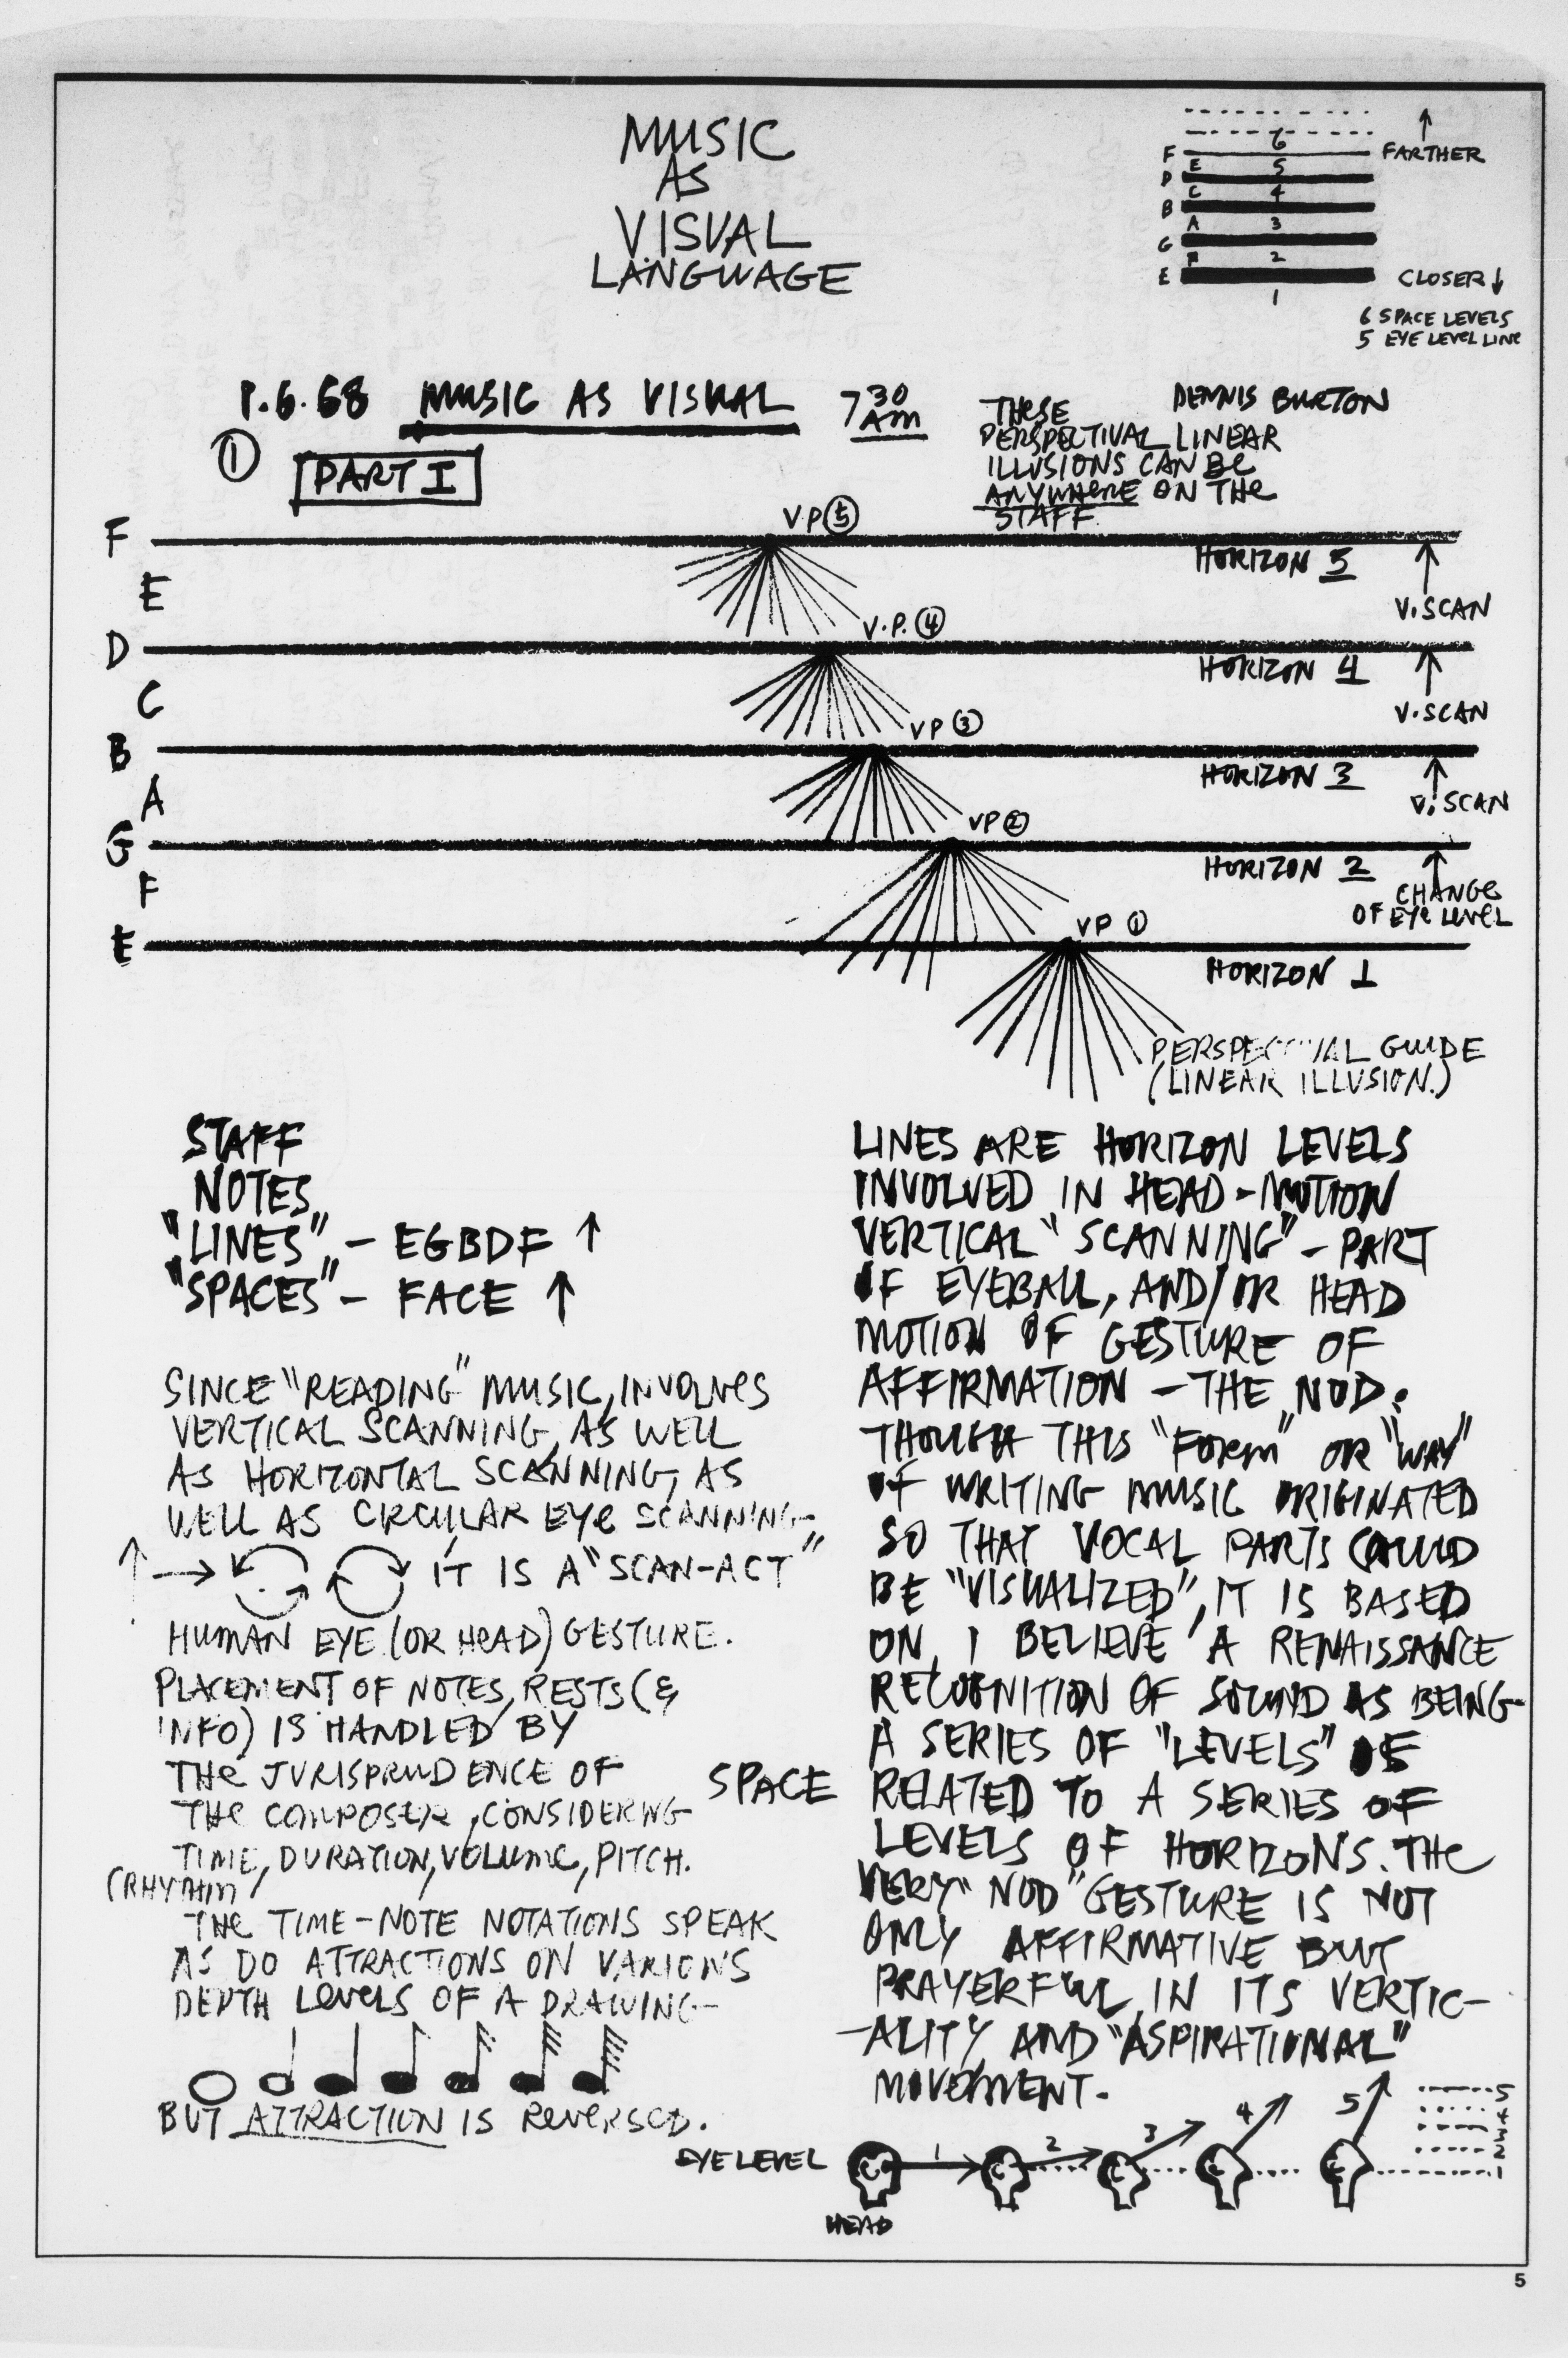 MUSIC
AS
VISUAL
LANGUAGE
6
F E 5 FARTHER
D C 4
B A 3
G F 2
E CLOSER
1
6 SPACE LEVELS
5 EYE LEVEL LINE
1.6.68 MUSIC AS VISUAL 7 30 AM
DENNIS BURTON
① PART I
THESE
PERSPECTIVAL LINEAR
ILLUSIONS CAN BE
ANYWHERE ON THE
STAFF.
F V.P ⑤ HORIZON 5
E V.SCAN
D V.P. ④ HORIZON 4
C V.SCAN
B VP ③ HORIZON 3
A V.SCAN
G VP ② HORIZON 2
F CHANGE
OF EYE LEVEL
E VP ① HORIZON 1
GUIDE
(LINEAR ILLUSION.)
STAFF
NOTES
"LINES" - EGBDF ↑
"SPACES" - FACE ↑
SINCE "READING" MUSIC, INVOLVES
VERTICAL SCANNING, AS WELL
AS HORIZONTAL SCANNING, AS
WELL AS CIRCULAR EYE SCANNING-
↑ → IT IS A "SCAN-ACT"
HUMAN EYE (OR HEAD) GESTURE.
PLACEMENT OF NOTES, RESTS (&
INFO) IS HANDLED BY
THE JURISPRUDENCE OF
THE COMPOSER, CONSIDERING
TIME, DURATION, VOLUME, PITCH.
(RHYTHM
THE TIME-NOTE NOTATIONS SPEAK
AS DO ATTRACTIONS ON VARIOUS
DEPTH LEVELS OF A DRAWING-
BUT ATTRACTION IS REVERSED.
LINES ARE HORIZON LEVELS
INVOLVED IN HEAD-MOTION
VERTICAL "SCANNING" - PART
OF EYEBALL, AND/OR HEAD
MOTION OF GESTURE OF
AFFIRMATION - THE NOD.
THOUGH THIS "FORM" OR "WAY"
OF WRITING MUSIC ORIGINATED
SO THAT VOCAL PARTS COULD
BE "VISUALIZED", IT IS BASED
ON, I BELIEVE A RENAISSANCE
RECOGNITION OF SOUND AS BEING
A SERIES OF "LEVELS" OF
SPACE RELATED TO A SERIES OF
LEVELS OF HORIZONS. THE
VERY "NOD" GESTURE IS NOT
ONLY AFFIRMATIVE BUT
PRAYERFUL, IN ITS VERTIC-
-ALITY AND "ASPIRATIONAL"
MOVEMENT.
EYE LEVEL 1 2 3 4 5
HEAD
5
4
3
2
1
5